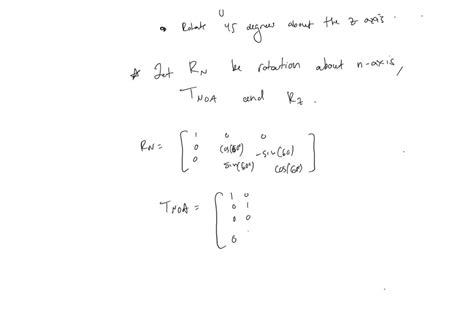 • Rotate 45 degree about the z axis.
* Let R_N be rotation about n-axis,
T_NOA and R_Z.
R_N = [ 1 0 0
0 cos(60) -sin(60)
0 sin(60) cos(60) ]
T_NOA = [ 1 0
0 1
0 0
0